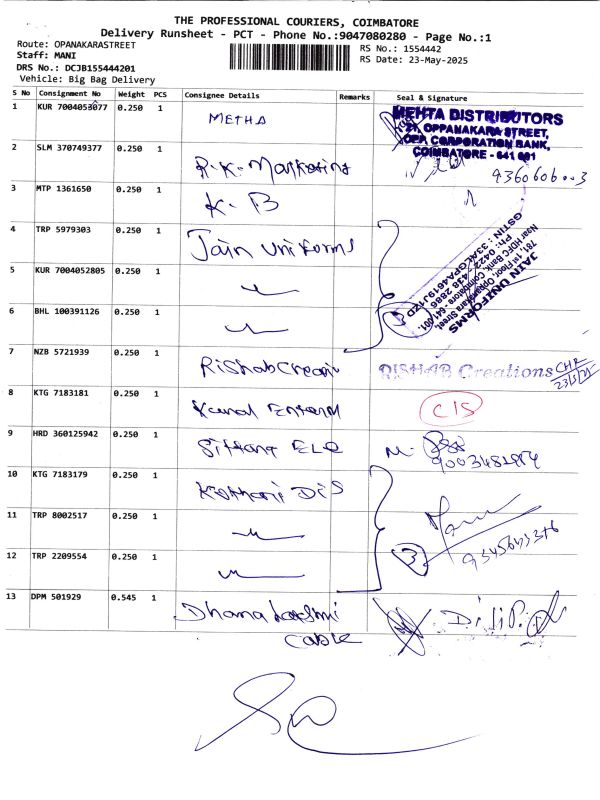 THE PROFESSIONAL COURIERS, COIMBATORE
Delivery Runsheet - PCT - Phone No.:9047080280 - Page No.:1
Route: OPANAKARASTREET
RS No.: 1554442
Staff: MANI
RS Date: 23-May-2025
DRS No.: DCJB155444201
Vehicle: Big Bag Delivery
S No Consignment No Weight PCS Consignee Details Remarks Seal & Signature
1 KUR 7004053077 0.250 1 METHA
MEHTA DISTRIBUTORS
OPPANAKARA STREET,
CORPORATION BANK,
COIMBATORE - 641 001
2 SLM 370749377 0.250 1 R.K. Marketing
9360606003
3 MTP 1361650 0.250 1 K. B
4 TRP 5979303 0.250 1 Jain uniforms
JAIN UNIFORMS
781, 1st Floor, Oppanakara Street,
Near HDFC Bank, Coimbatore - 641 001.
Ph : 0422 - 438 2886
5 KUR 7004052805 0.250 1
6 BHL 100391126 0.250 1
3
7 NZB 5721939 0.250 1 Rishab Creani RISHAB Creations CHR
23/5/25
8 KTG 7183181 0.250 1 CIS
9 HRD 360125942 0.250 1 ELE M.
10 KTG 7183179 0.250 1 Kothari Dis
11 TRP 8002517 0.250 1
12 TRP 2209554 0.250 1
3
13 DPM 501929 0.545 1 Dhana Laxlmi
cable
DiliP.